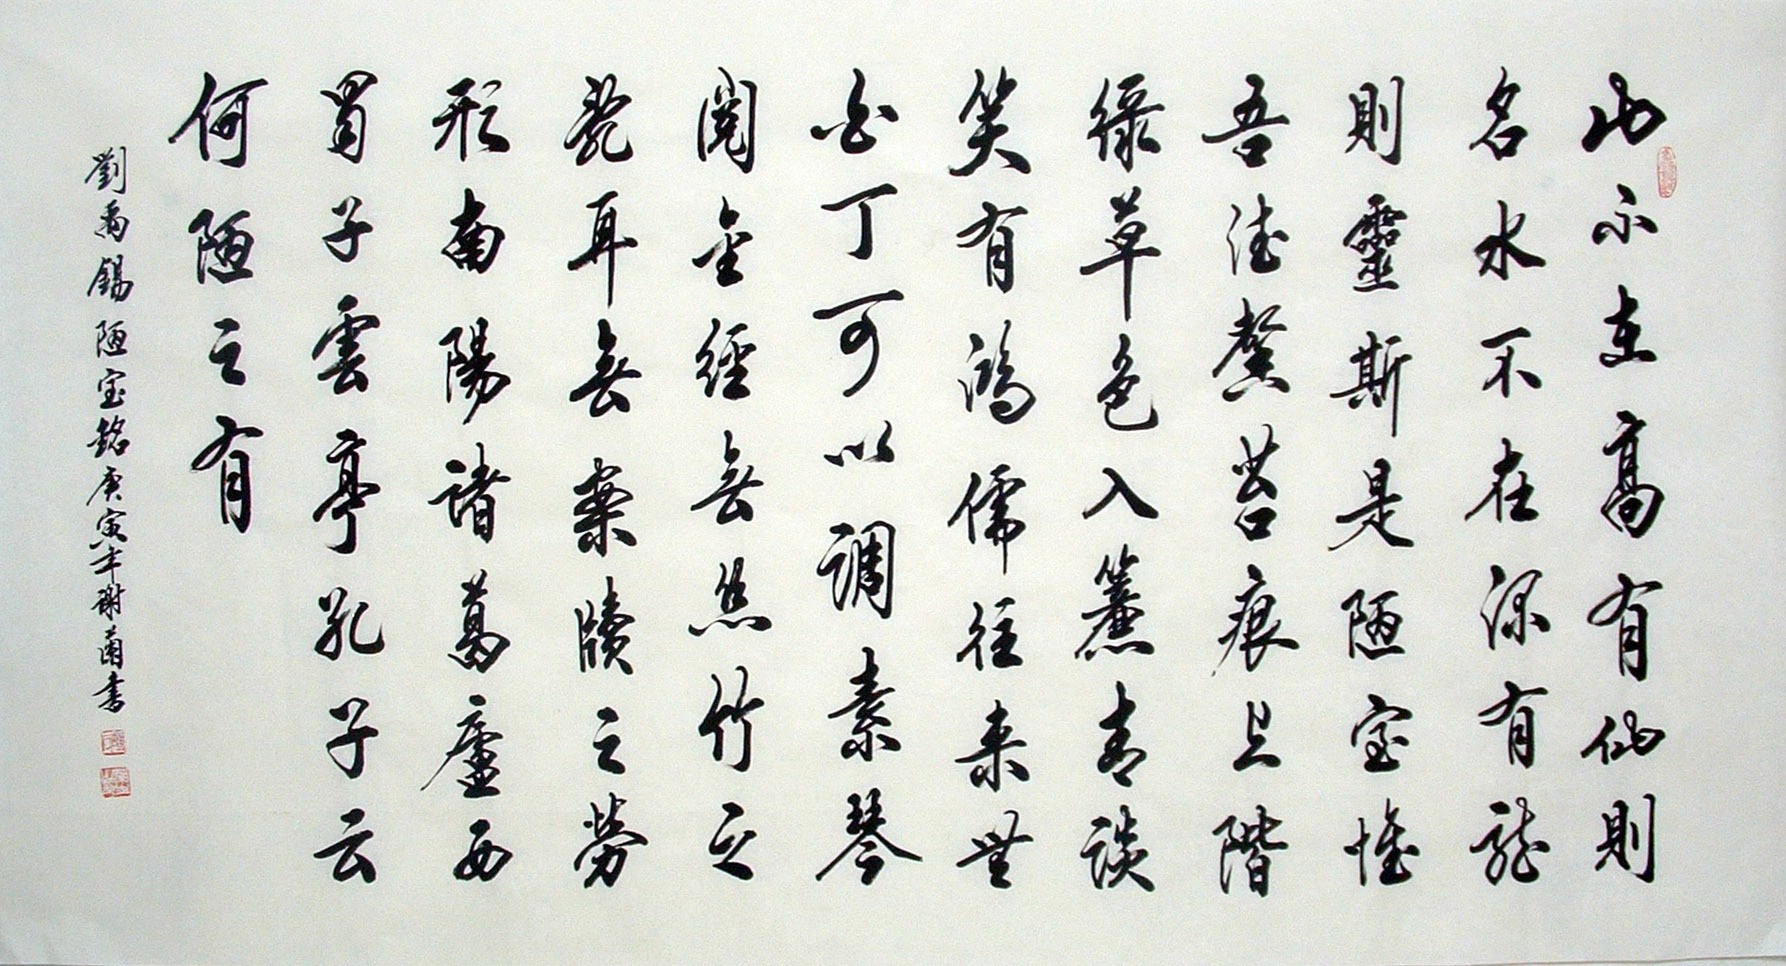 山不在高有仙則
名水不在深有龍
則靈斯是陋室惟
吾德馨苔痕上階
綠草色入簾青談
笑有鴻儒往來無
白丁可以調素琴
閱金經無絲竹之
亂耳無案牘之勞
形南陽諸葛廬西
蜀子雲亭孔子云
何陋之有
劉禹錫陋室銘庚寅年謝蘭书